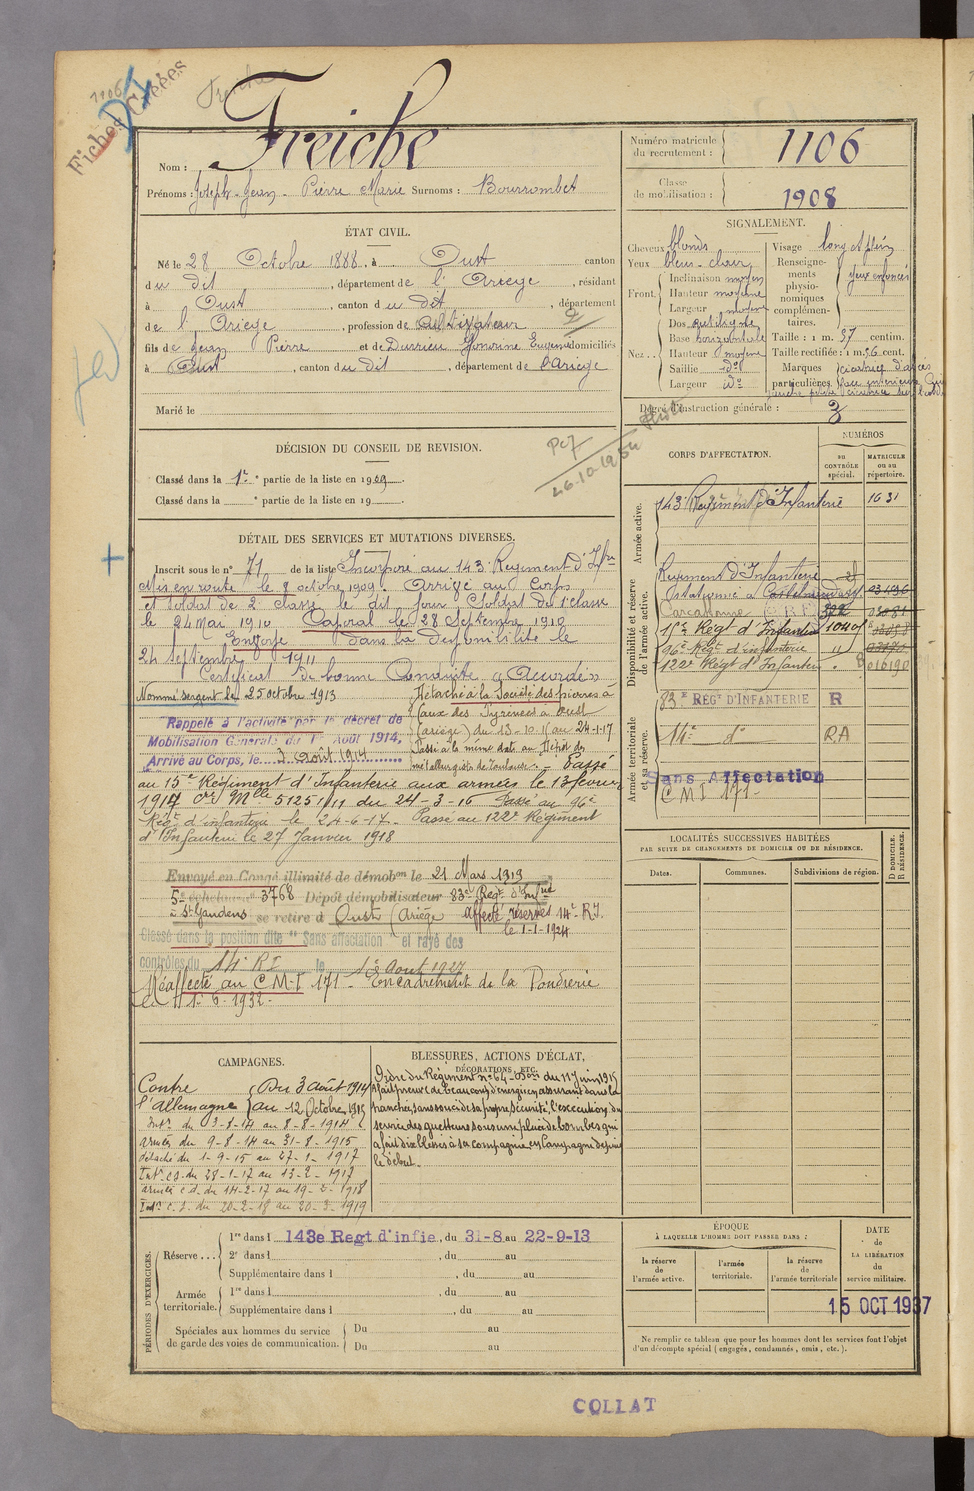 1106
Fiches Créées
Freiche
Nom : Freiche
Prénoms : Joseph-Jean-Pierre Marie Surnoms : Bourrombet
Numéro matricule
du recrutement : 1106
Classe
de mobilisation : 1908
ÉTAT CIVIL.
Né le 28 Octobre 1888, à Oust canton
du dit, département de l'Ariège, résidant
à Oust, canton du dit, département
de l'Ariège, profession de Cultivateur
fils de Jean Pierre et de Durrieu Honorine Eugénie domiciliés
à Oust, canton du dit, département de l'Ariège
Marié le
SIGNALEMENT.
Cheveux blonds
Yeux bleus-clair
Front. Inclinaison moyen
Hauteur moyenne
Largeur moyenne
Nez... Dos rectiligne
Base horizontale
Hauteur moyenne
Saillie do
Largeur do
Visage long et plein
Renseignements
physionomiques
complémentaires.
yeux enfoncés
Taille : 1 m. 57 centim.
Taille rectifiée : 1 m. 56 cent.
Marques
particulières
Degré d'instruction générale : 3
DÉCISION DU CONSEIL DE REVISION.
Classé dans la 1re partie de la liste en 1909.
Classé dans la e partie de la liste en 19
26-10-1954
DÉTAIL DES SERVICES ET MUTATIONS DIVERSES.
Inscrit sous le n° 71 de la liste Incorporé au 143e Régiment d'Infrie
Mis en route le 8 octobre 1909. Arrivé au Corps
et soldat de 2e classe le dit jour Soldat de 1e classe
le 24 Mai 1910 Caporal le 28 Septembre 1910
Envoyé dans la disponibilité le
24 septembre 1911
Certificat de bonne Conduite "Accordé"
Nommé sergent le 25 octobre 1913
Rappelé à l'activité par le décret de
Mobilisation Générale du 1er Août 1914,
Arrivé au Corps, le 3 Août 1914
Détaché à la Société des pierres à
faux des Pyrénées à Oust
(Ariège) du 13-10-15 au 24-1-17
Passé à la même date au Dépôt des
métallurgistes de Toulouse. - Passé
au 15e Régiment d'Infanterie aux armées le 13 février
1917 Mlle 51251/11 du 24-3-16 Passé au 96e
Régt d'infanterie le 24-6-17. Passé au 122e Régiment
d'Infanterie le 27 Janvier 1918
Envoyé en Congé illimité de démobon le 21 Mars 1919
5e échelon n° 3768 Dépôt démobilisateur 83e Régt d'Infrie
à St Gaudens se retire à Oust (Ariège) affecté réserves 14e R.I.
le 1-1-1924
Classé dans la position dite "Sans affectation" et rayé des
contrôles du 14e RI le 1er Août 1927
Réaffecté au C.M.I 171 - Encadrement de la Poudrerie
le 1-6-1932.
CORPS D'AFFECTATION.
NUMÉROS
au
CONTRÔLE
spécial.
MATRICULE
ou au
répertoire.
Armée active.
143e Régiment d'Infanterie 1631
Disponibilité et réserve
de l'armée active.
Régiment d'Infanterie
Carcassonne 322
15e Régt d'Infanterie
96e Régt d'infanterie "
122e Régt d'Infanterie 016190
Armée territoriale
et sa réserve.
83e RÉGT D'INFANTERIE R
14e do RA
Sans Affectation
CMI 171-
LOCALITÉS SUCCESSIVES HABITÉES
PAR SUITE DE CHANGEMENTS DE DOMICILE OU DE RÉSIDENCE.
D DOMICILE.
R RÉSIDENCE.
Dates.
Communes.
Subdivisions de région.
CAMPAGNES.
Contre
l'Allemagne
Du 3 Août 1914
au 12 Octobre 1915
Intr. du 3-8-14 au 8-8-1914
armées du 9-8-14 au 31-8-1915
détaché du 1-9-15 au 27-1-1917
Intr c.s. du 28-1-17 au 13-2-1917
armées c.d. du 14-2-17 au 19-2-1918
Intr c.s. du 20-2-18 au 20-3-1919
BLESSURES, ACTIONS D'ÉCLAT,
DÉCORATIONS, ETC.
Ordre du Régiment n° 64 du 11 Juin 1915
A fait preuve de beaucoup d'énergie en assurant dans la
tranchée, sans souci de sa propre sécurité, l'exécution du
service des guetteurs sous une pluie de bombes qui
a fait dix blessés à sa compagnie, en Campagne depuis
le début.
PÉRIODES D'EXERCICES.
Réserve... 1re dans l 143e Regt d'infie, du 31-8 au 22-9-13
2e dans l , du au
Supplémentaire dans l , du au
Armée
territoriale. 1re dans l , du au
Supplémentaire dans l , du au
Spéciales aux hommes du service
de garde des voies de communication.
Du au
Du au
ÉPOQUE
À LAQUELLE L'HOMME DOIT PASSER DANS :
la réserve
de
l'armée active.
l'armée
territoriale.
la réserve
de
l'armée territoriale
DATE
de
LA LIBÉRATION
du
service militaire.
15 OCT 1937
Ne remplir ce tableau que pour les hommes dont les services font l'objet
d'un décompte spécial (engagés, condamnés, omis, etc.).
COLLAT